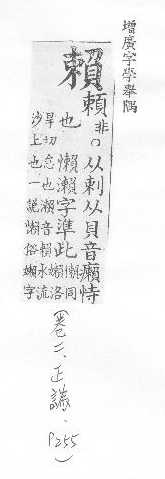 增廣字學舉隅
賴
頼非○从剌从貝音癩恃
也 懶瀨字準此
懶同
旱切怠也瀨音賴水流
沙上也一說嬾俗嬾字
(卷二、正譌、
P255)